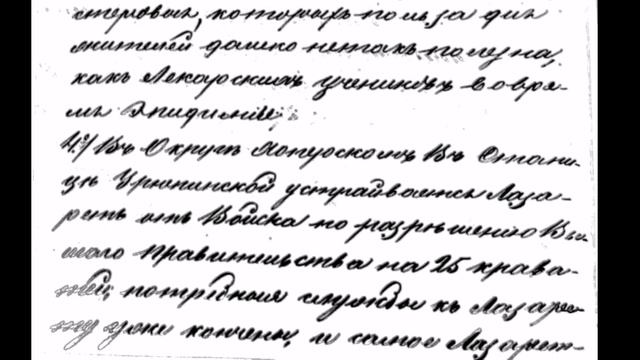 стеровыя, которыхъ польза для
жителей далеко не такъ полезна,
какъ Лекарскихъ учениковъ во вре-
мѣ Эпидиміи;
4е/ Въ Округѣ Хоперскомъ Въ Стани-
цѣ Урюпинской устрайвается Лаза-
ретъ отъ Войска по разрѣшенію Вы
шаго Правительства на 25 крава-
тей, потребныя службы къ Лазаре
ту уже кончены, и самое Лазарет-